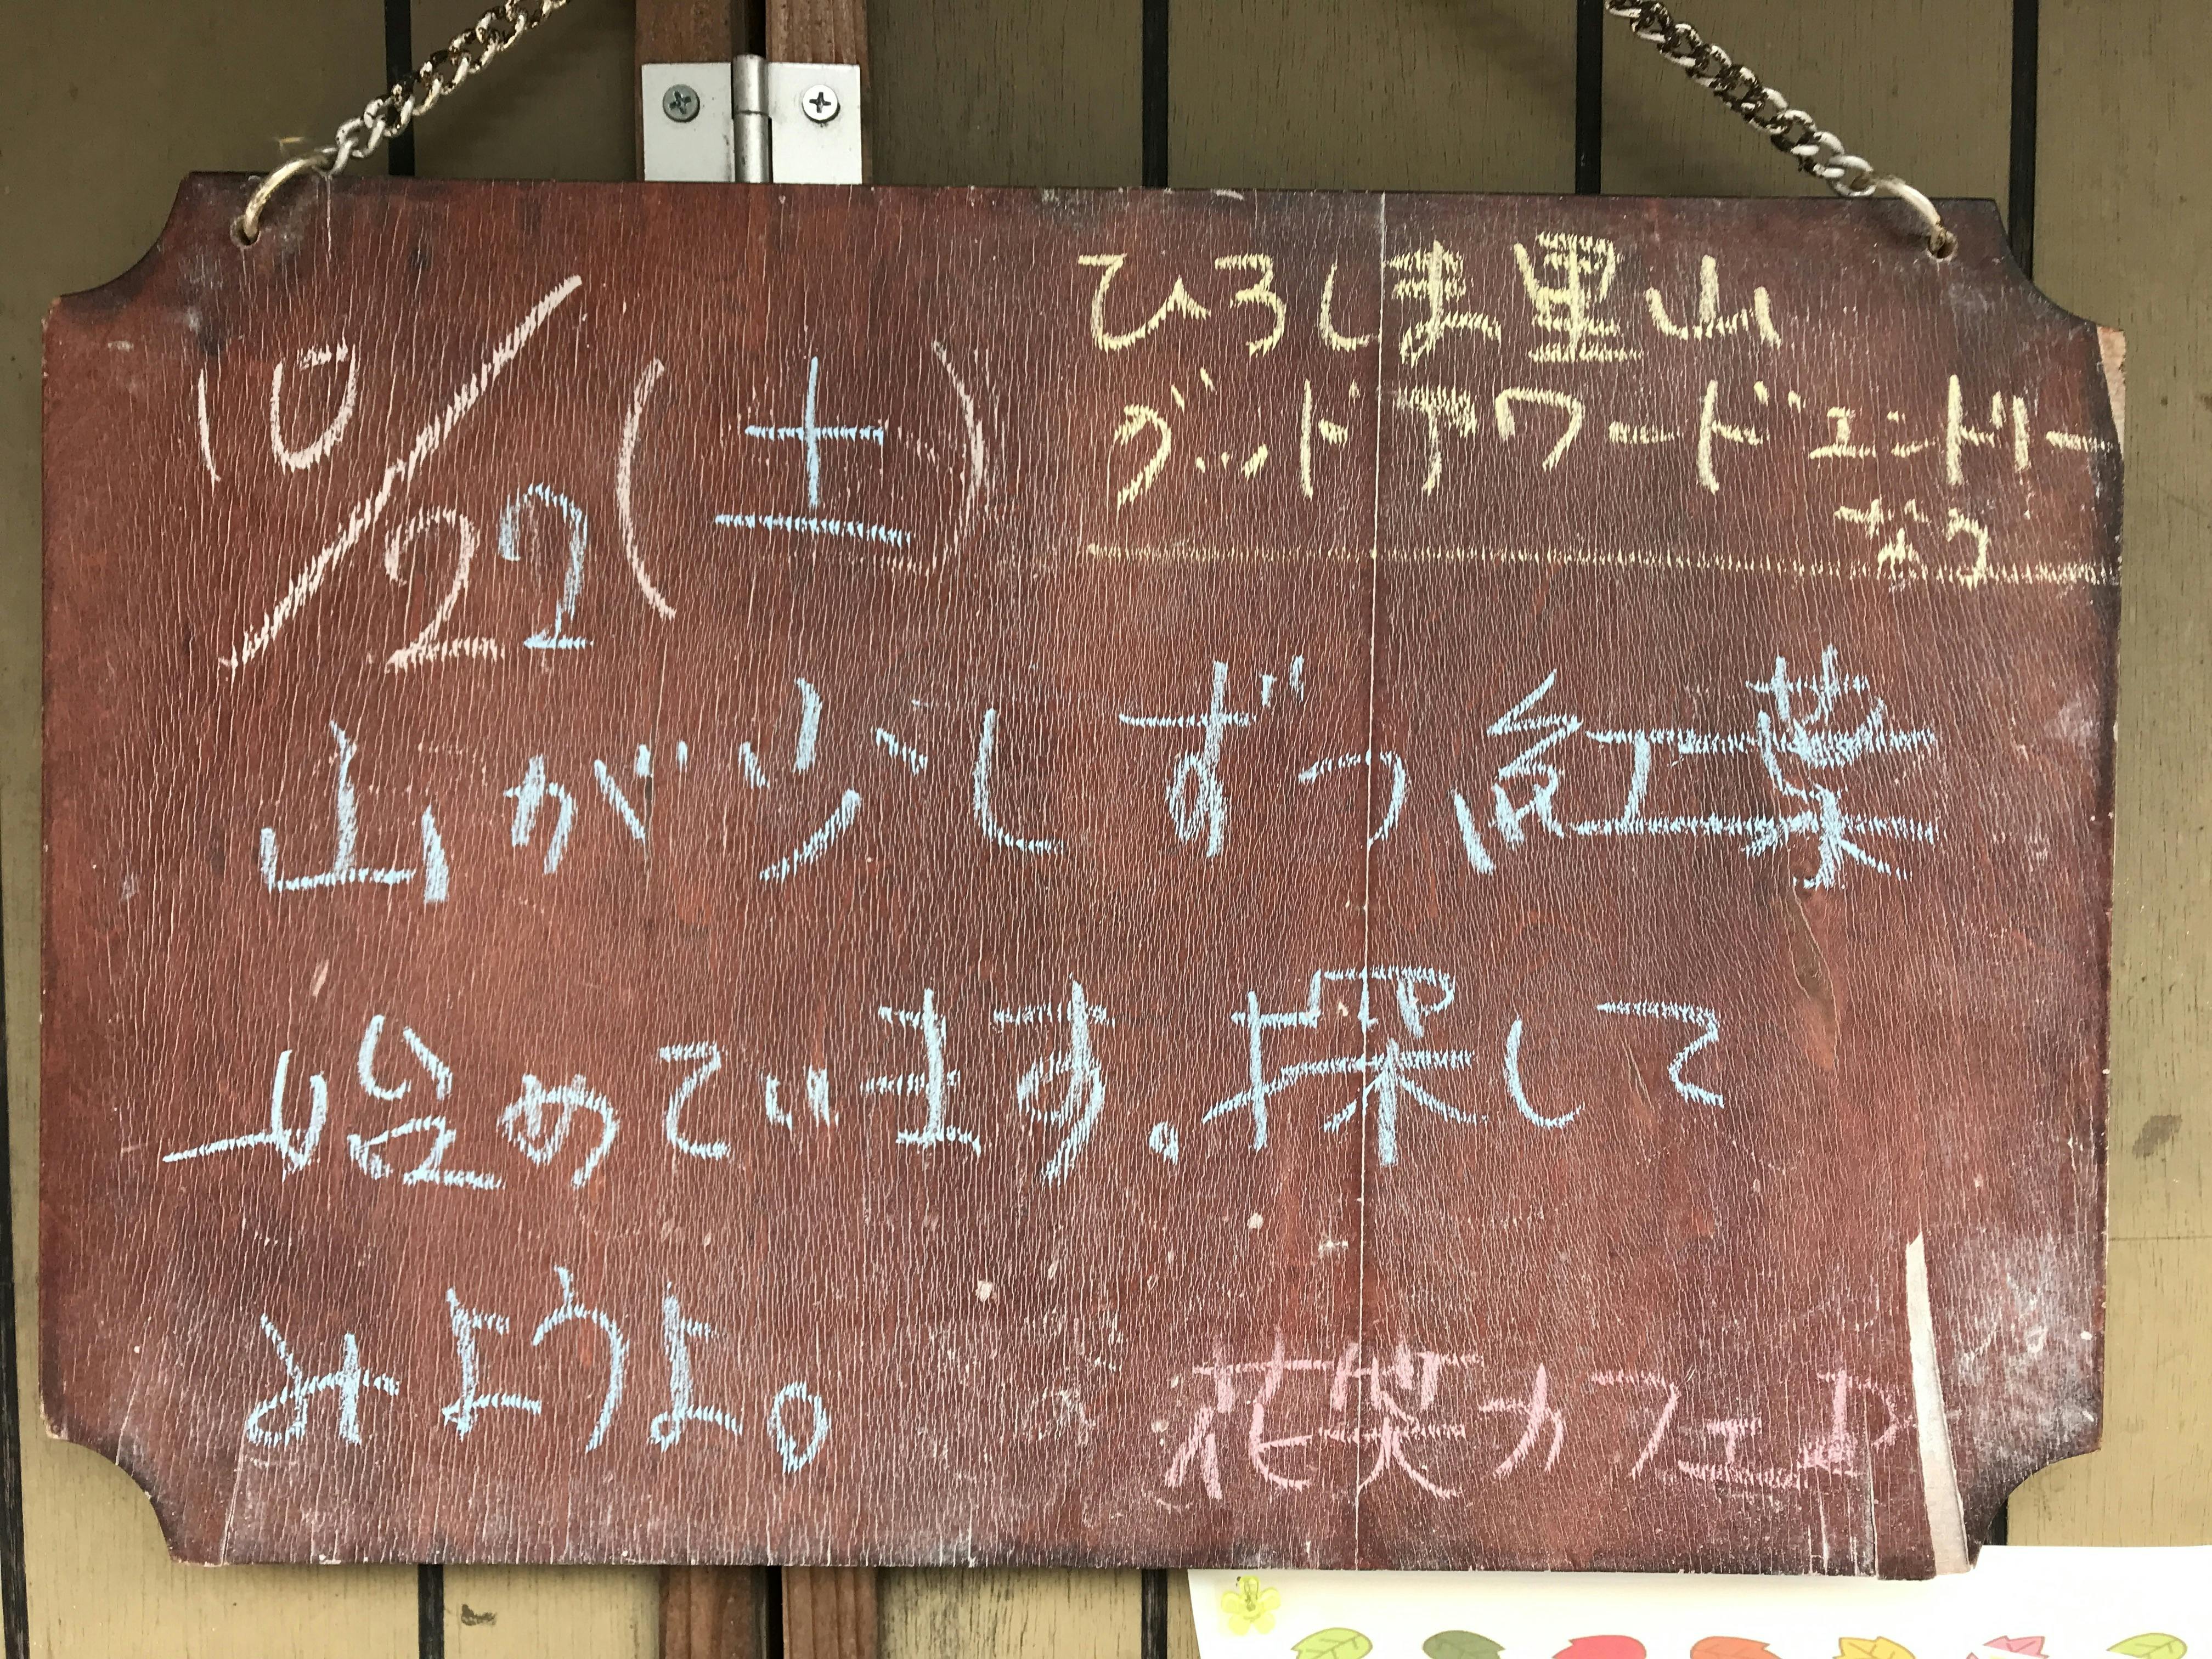 10/22(土)
ひろしま里山
グッドアワードエントリー
山が少しずつ紅葉
始めています。探して
みようよ。
花笑カフェ